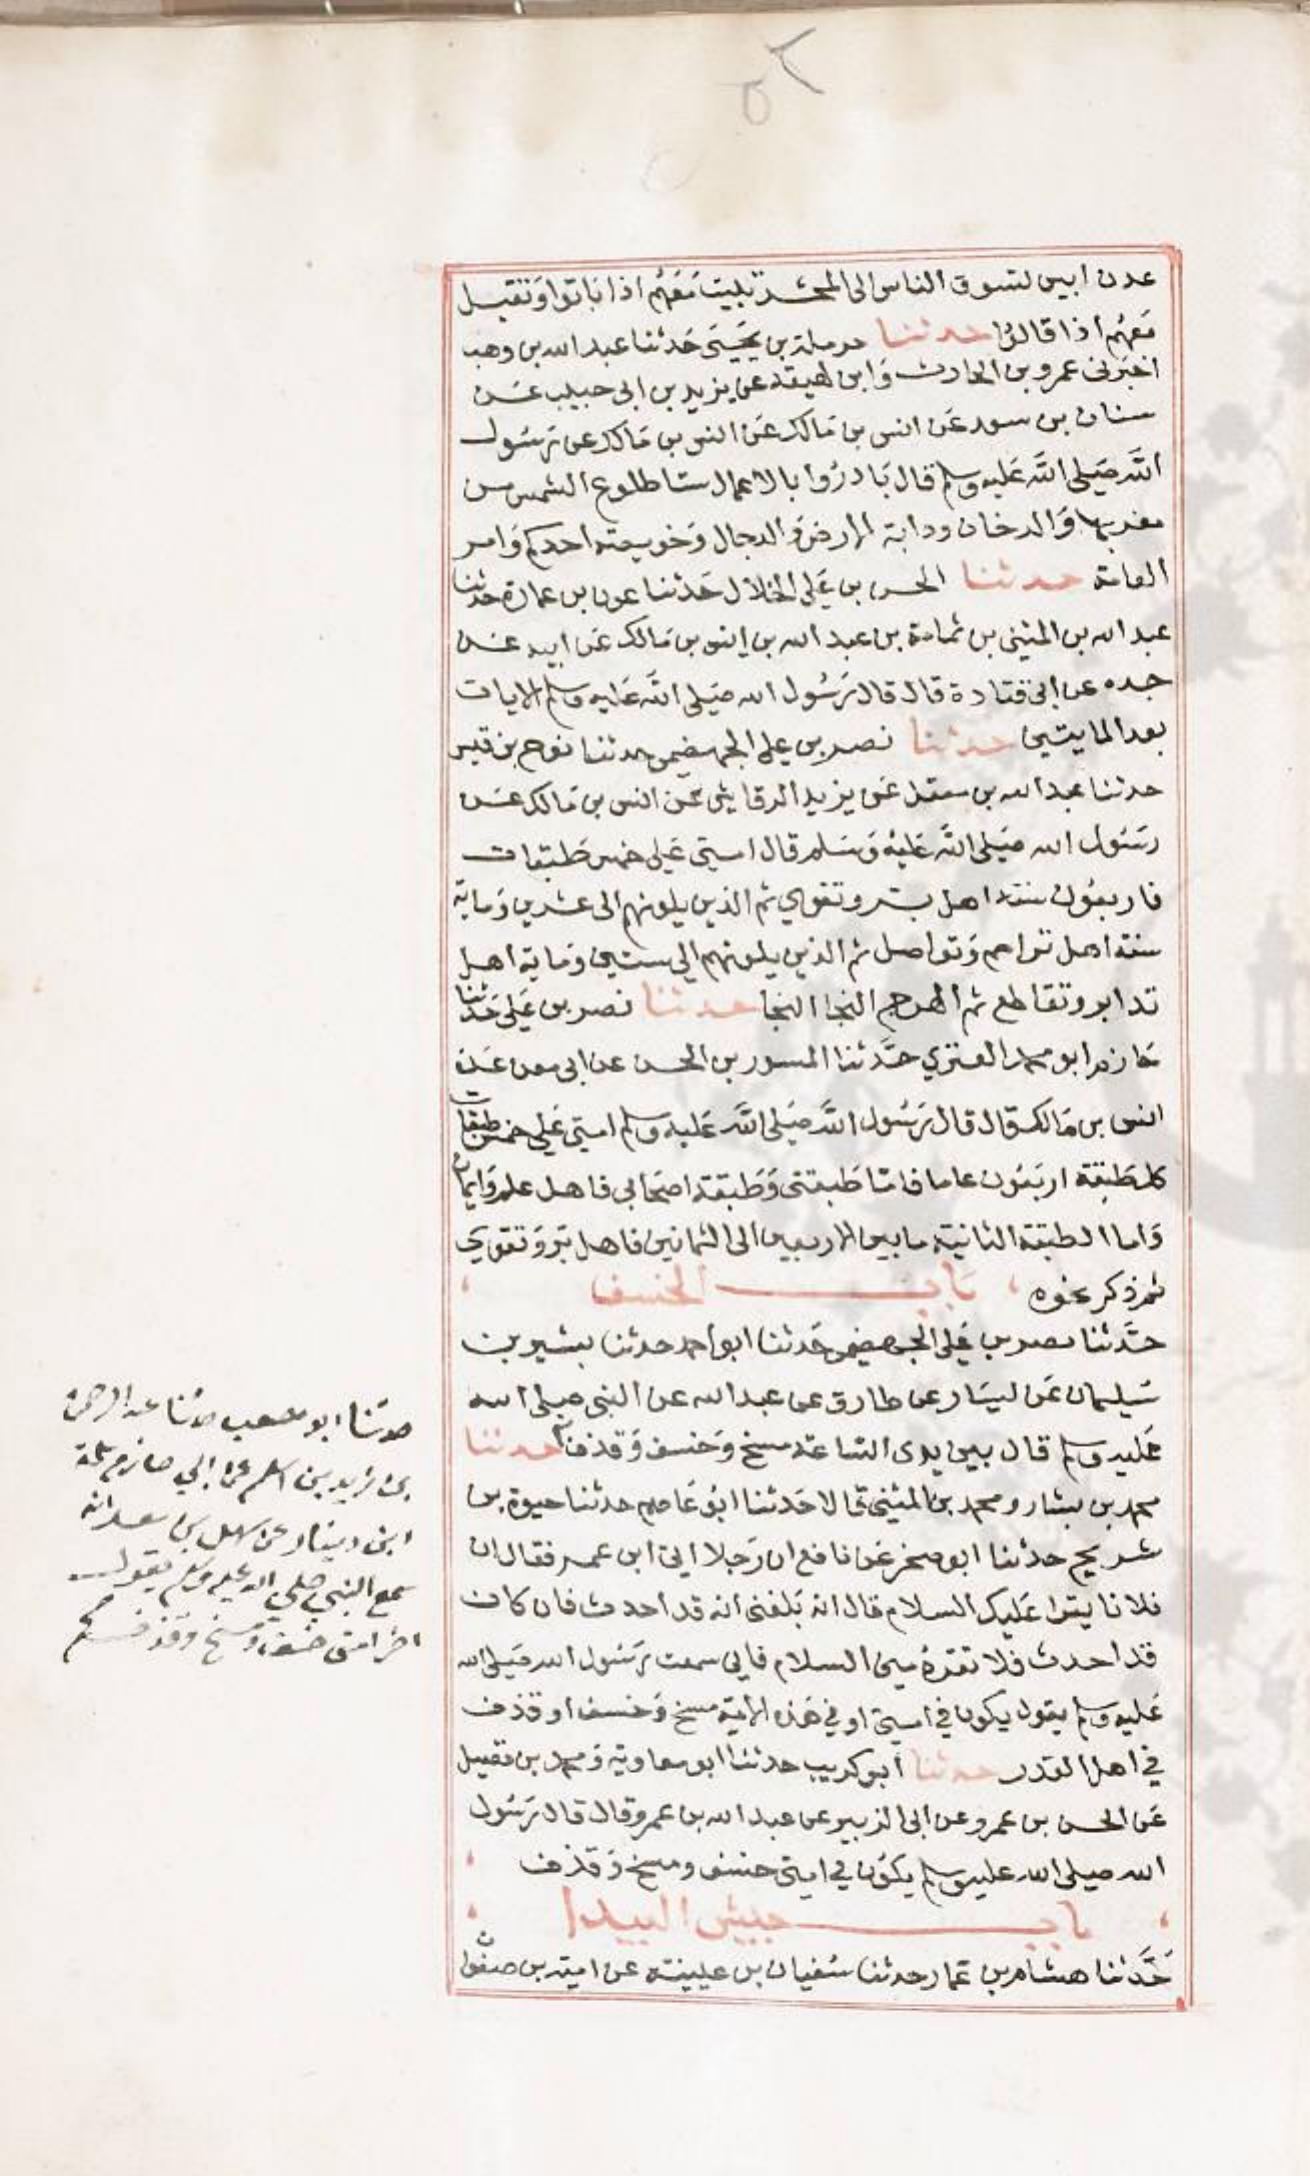 عدن ابين تسوق الناس الى المحشر تبيت معهم اذا باتوا وتقيل
معهم اذا قالوا حدثنا حرملة بن يحيى حدثنا عبد الله بن وهب
اخبرنى عمرو بن الحارث وابن لهيعة عن يزيد بن ابى حبيب عن
سنان بن سعد عن انس بن مالك عن انس بن مالك عن رسول
الله صلى الله عليه وسلم قال بادروا بالاعمال ستا طلوع الشمس من
مغربها والدخان ودابة الارض والدجال وخويصة احدكم وامر
العامة حدثنا الحسن بن على الخلال حدثنا عون بن عمارة حدثنا
عبد الله بن المثنى بن ثمامة بن عبد الله بن انس بن مالك عن ابيه عن
جده عن ابى قتادة قال قال رسول الله صلى الله عليه وسلم الايات
بعد المايتين حدثنا نصر بن على الجهضمى حدثنا نوح بن قيس
حدثنا عبد الله بن معقل عن يزيد الرقاشى عن انس بن مالك عن
رسول الله صلى الله عليه وسلم قال امتى على خمس طبقات
فاربعون سنة اهل بر وتقوى ثم الذين يلونهم الى عشرين ومايه
سنة اهل تراحم وتواصل ثم الذين يلونهم الى ستين ومايه اهل
تدابر وتقاطع ثم الهرج الهرج النجا النجا حدثنا نصر بن على حدثنا
خازم ابو محمد العنزي حدثنا المسور بن الحسن عن ابى معن عن
انس بن مالك قال قال رسول الله صلى الله عليه وسلم امتى على خمس طبقات
كل طبقة اربعون عاما فاما طبقتى وطبقة اصحابى فاهل علم وايمان
واما الطبقة الثانية ما بين الاربعين الى الثمانين فاهل بر وتقوى
ثم ذكر نحوه باب الخسف
حدثنا نصر بن على الجهضمى حدثنا ابو احمد حدثنا بشير بن
سليمان عن سيار عن طارق عن عبد الله عن النبى صلى الله
عليه وسلم قال بين يدى الساعة مسخ وخسف وقذف حدثنا
محمد بن بشار ومحمد بن المثنى قالا حدثنا ابو عاصم حدثنا حيوة بن
شريح حدثنا ابو صخر عن نافع ان رجلا اتى ابن عمر فقال ان
فلانا يقرا عليك السلام قال انه بلغنى انه قد احدث فان كان
قد احدث فلا تقره منى السلام فانى سمعت رسول الله صلى الله
عليه وسلم يقول يكون في امتى او في هذه الامة مسخ وخسف او قذف
في اهل القدر حدثنا ابو كريب حدثنا ابو معاوية ومحمد بن فضيل
عن الحسن بن عمرو عن ابى الزبير عن عبد الله بن عمرو قال قال رسول
الله صلى الله عليه وسلم يكون في امتى خسف ومسخ وقذف
باب جيش البيدا
حدثنا هشام بن عمار حدثنا سفيان بن عيينة عن امية بن صفوان
حدثنا ابو مصعب حدثنا عبد الرحمن
بن زيد بن اسلم عن ابي حازم سلمة
ابن دينار عن سهل بن سعد انه
سمع النبي صلي الله عليه وسلم يقول
اخر امتى خسف ومسخ وقذف